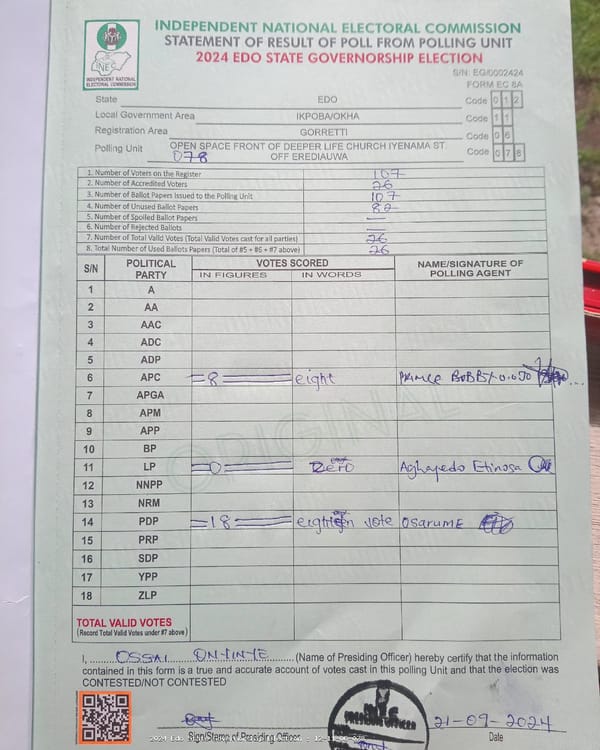 INDEPENDENT NATIONAL ELECTORAL COMMISSION
STATEMENT OF RESULT OF POLL FROM POLLING UNIT
2024 EDO STATE GOVERNORSHIP ELECTION
INEC
INDEPENDENT NATIONAL ELECTORAL COMMISSION
S/N: EG/0002424
FORM EC 8A
State EDO Code 0 1 2
Local Government Area IKPOBA/OKHA Code 1 1
Registration Area GORRETTI Code 0 6
Polling Unit OPEN SPACE FRONT OF DEEPER LIFE CHURCH IYENAMA ST. OFF EREDIAUWA Code 0 7 8
078
1. Number of Voters on the Register 107
2. Number of Accredited Voters 26
3. Number of Ballot Papers Issued to the Polling Unit 107
4. Number of Unused Ballot Papers
5. Number of Spoiled Ballot Papers —
6. Number of Rejected Ballots —
7. Number of Total Valid Votes (Total Valid Votes cast for all parties) 26
8. Total Number of Used Ballots Papers (Total of #5 + #6 + #7 above) 26
S/N POLITICAL PARTY VOTES SCORED NAME/SIGNATURE OF POLLING AGENT
IN FIGURES IN WORDS
1 A
2 AA
3 AAC
4 ADC
5 ADP
6 APC =8= eight PRINCE
7 APGA
8 APM
9 APP
10 BP
11 LP =0= Zero Etinosa
12 NNPP
13 NRM
14 PDP =18= eighteen vote OSARUME
15 PRP
16 SDP
17 YPP
18 ZLP
ORIGINAL
TOTAL VALID VOTES
(Record Total Valid Votes under #7 above)
I, OSSAI (Name of Presiding Officer) hereby certify that the information
contained in this form is a true and accurate account of votes cast in this polling Unit and that the election was
CONTESTED/NOT CONTESTED
PRESIDING OFFICER
21-09-2024
Sign/Stamp of Presiding Officer Date